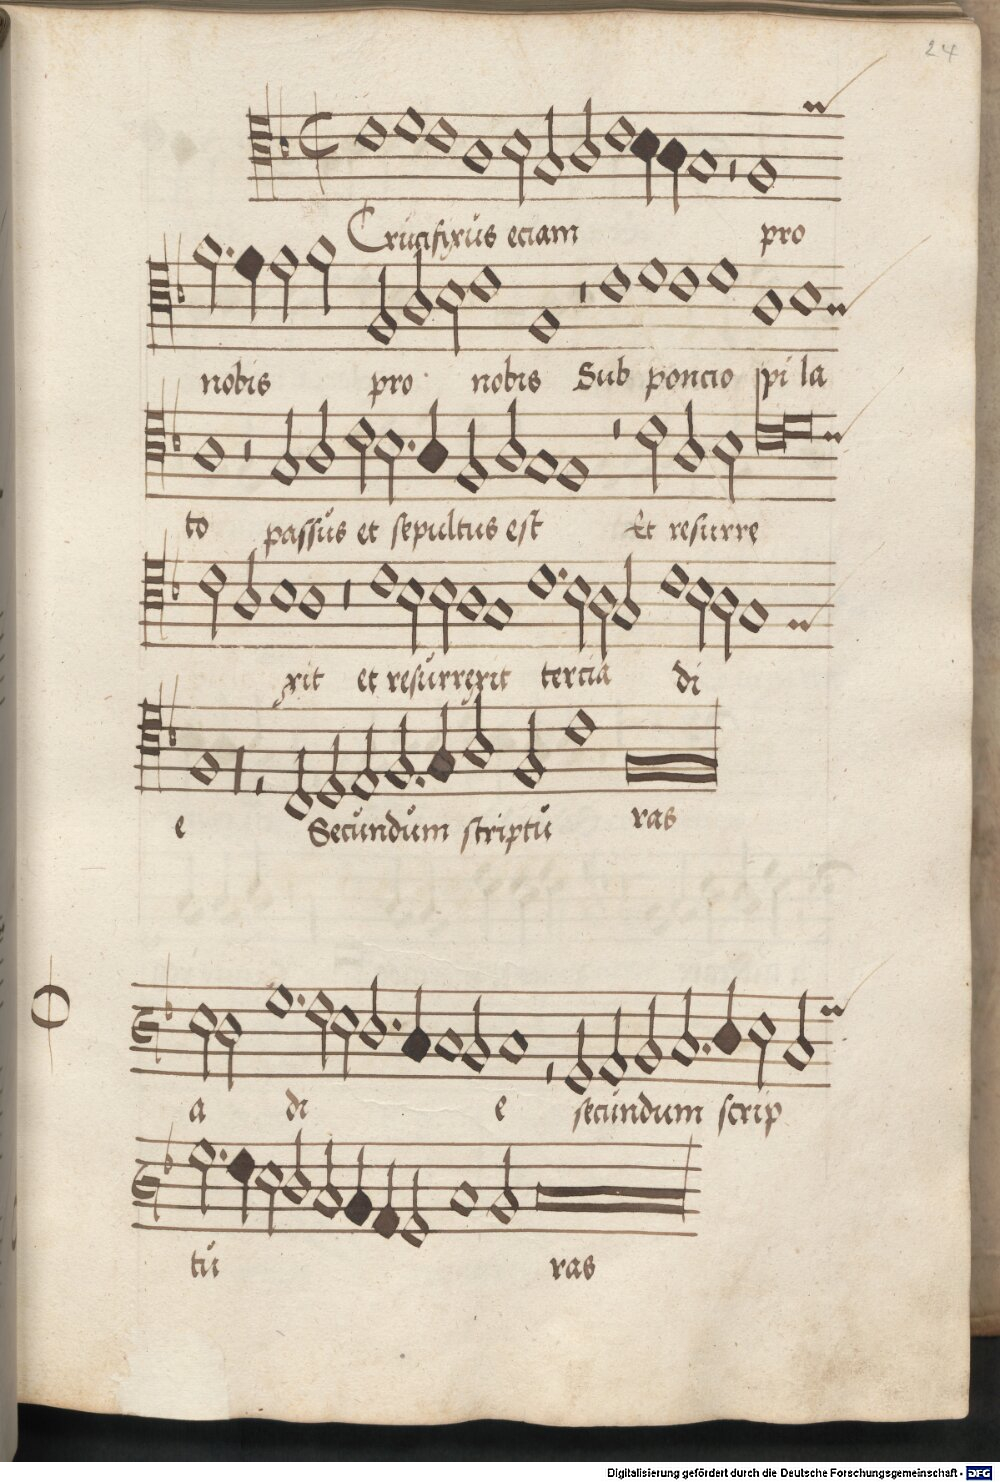 24
Crucifixus eciam pro
nobis pro nobis Sub poncio pi la
to passus et sepultus est Et resurre
xit et resurrexit tercia di
e Secundum scriptu ras
a di e secundum scrip
tu ras
Digitalisierung gefördert durch die Deutsche Forschungsgemeinschaft - DFG